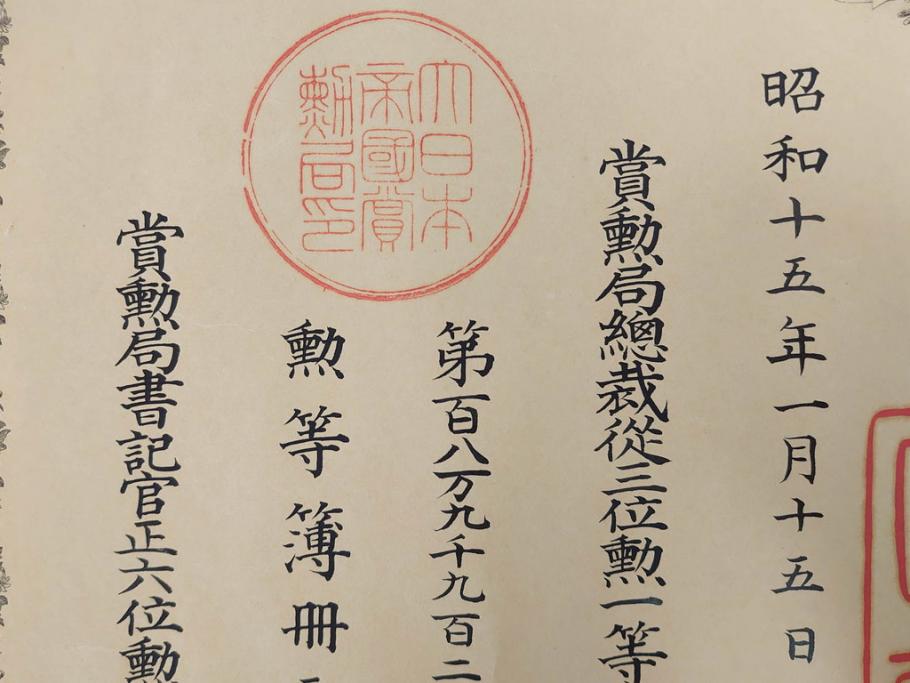 昭和十五年一月十五日
賞勲局總裁從三位勲一等
第百八万九千九百二
大日本
帝國賞
勲局印
勲等簿冊
賞勲局書記官正六位勲